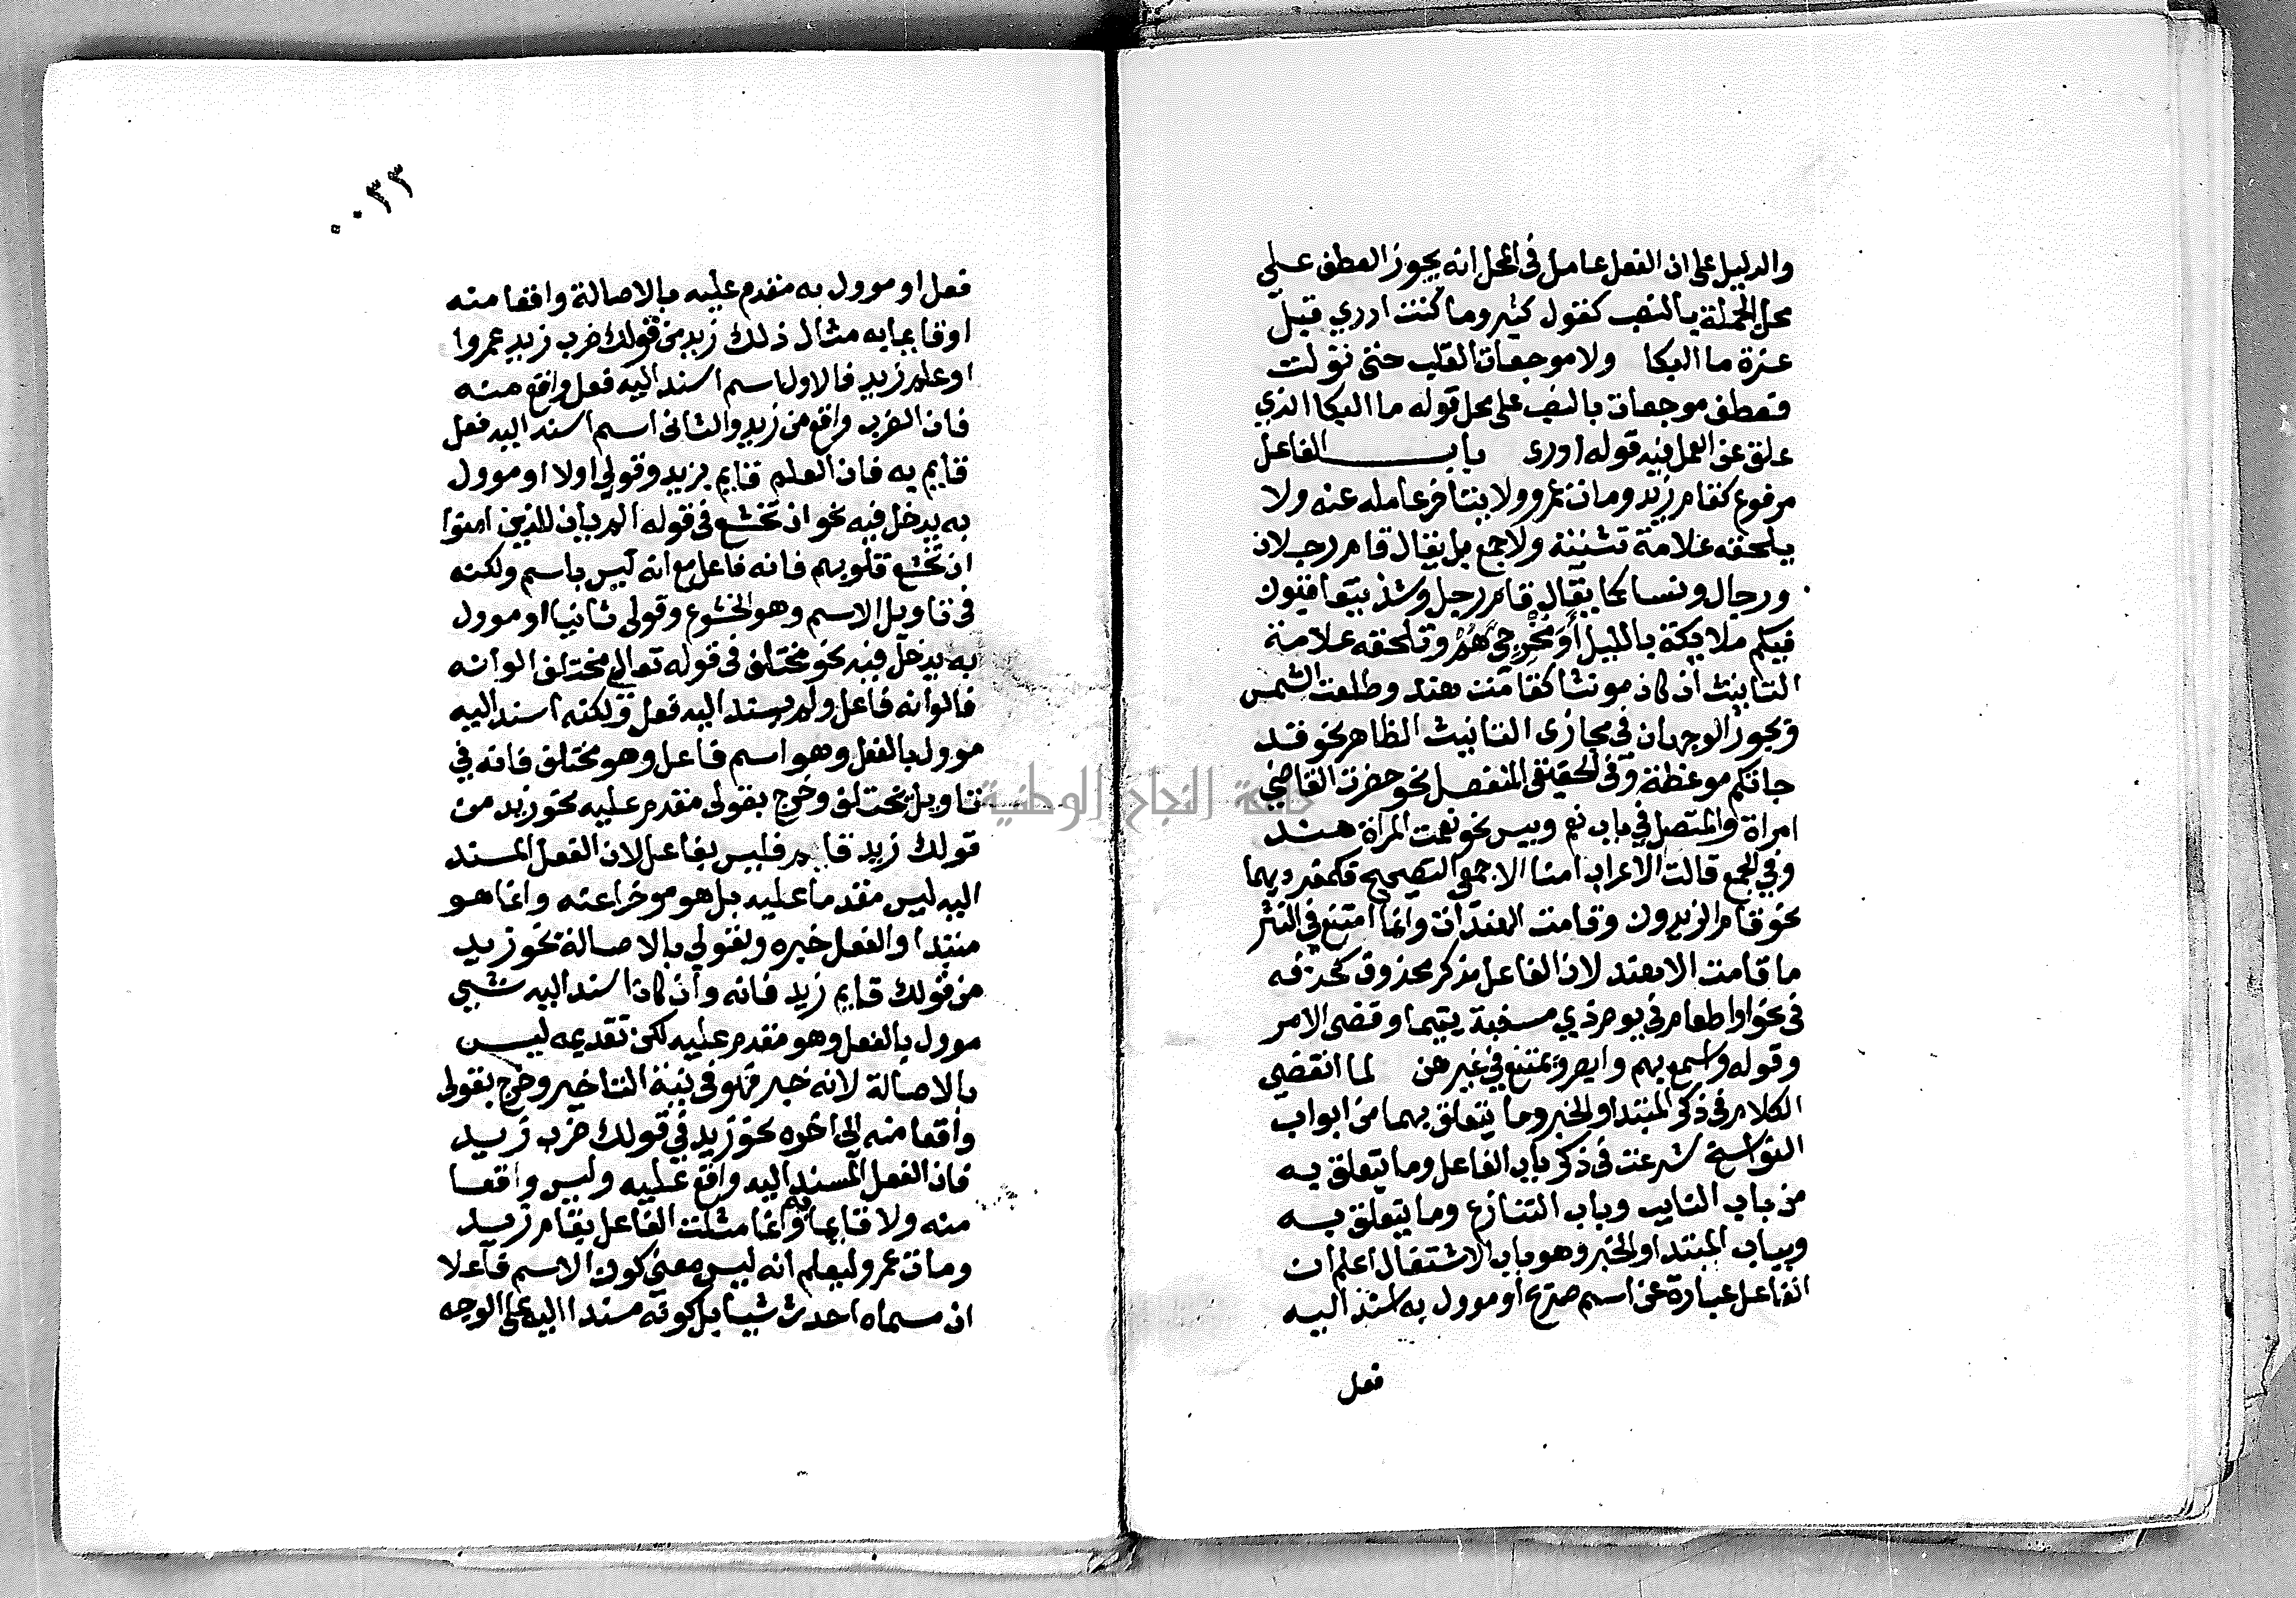 والدليل على ان الفعل عامل في المحل انه يجوز العطف على
محل الجملة بالنصب كقول كثير وما كنت ادري قبل
عزة ما البكا ولا موجعات القلب حتى تولت
فعطف موجعات بالنصب على محل قوله ما البكا الذي
علق عن العمل فيه قوله ادرى باب الفاعل
مرفوع كقام زيد ومات عمرو ولا يتاخر عامله عنه ولا
يلحقه علامة تثنية ولا جمع بل يقال قام رجلان
ورجال ونسا كما يقال قام رجل وشذ يتعاقبون
فيكم ملايكة بالليل أَوَمُخْرِجِيَّ هُمْ وتلحقه علامة
التانيث ان كان مونثا كقامت هند وطلعت الشمس
ويجوز الوجهان في مجازى التانيث الظاهر نحو قد
جاتكم موعظة وفي الحقيقي المنفصل نحو حضرت القاضي
امراة والمتصل في باب نعم وبيس نحو نعمت المراة هند
وفي الجمع قالت الاعراب امنا الا جمعي التصحيح فكمفرديهما
نحو قام الزيدون وقامت الهندات وانما امتنع في النثر
ما قامت الا هند لان الفاعل مذكر محذوف كحذفه
في نحو او اطعام في يوم ذي مسغبة يتيما وقضى الامر
وقوله واسمع بهم وابصر ويمتنع في غيرهن لما انقضى
الكلام في ذكر المبتدا والخبر وما يتعلق بهما من ابواب
النواسخ شرعت في ذكر باب الفاعل وما يتعلق به
من باب النايب وباب التنازع وما يتعلق به
وبباب المبتدا والخبر وهو باب الاشتغال اعلم ان
الفاعل عبارة عن اسم صريح او موول به اسند اليه
فعل
٠٠٣٣
فعل او موول به مقدم عليه بالاصالة واقعا منه
او قايما به مثال ذلك زيد من قولك ضرب زيد عمروا
او علم زيد فالاول اسم اسند اليه فعل واقع منه
فان الضرب واقع من زيد والثانى اسم اسند اليه فعل
قايم به فان العلم قايم بزيد وقولي اولا او موول
به يدخل فيه نحو ان تخشع في قوله الم يان للذين امنوا
ان تخشع قلوبهم فانه فاعل مع انه ليس باسم ولكنه
في تاويل الاسم وهو الخشوع وقولى ثانيا او موول
به يدخل فيه نحو مختلف في قوله تعالى مختلف الوانه
فالوانه فاعل ولم يسند اليه فعل ولكنه اسند اليه
موول بالفعل وهو اسم فاعل وهو مختلف فانه في
تاويل يختلف وخرج بقولى مقدم عليه نحو زيد من
قولك زيد قام فليس بفاعل لان الفعل المسند
اليه ليس مقدما عليه بل هو موخرا عنه وانما هو
مبتدا والفعل خبره وبقولي بالاصالة نحو زيد
من قولك قايم زيد فانه وان كان اسند اليه شي
موول بالفعل وهو مقدم عليه لكن تقديمه ليس
بالاصالة لانه خبر فهو في نية التاخير وخرج بقولى
واقعا منه الى اخره نحو زيد في قولك ضرب زيد
فان الفعل المسند اليه واقع عليه وليس واقعا
منه ولا قايما به وانما مثلت الفاعل بقام زيد
ومات عمرو ليعلم انه ليس معنى كون الاسم فاعلا
ان مسماه احدث شيا بل كونه مسندا اليه على الوجه
جامعة النجاح الوطنية